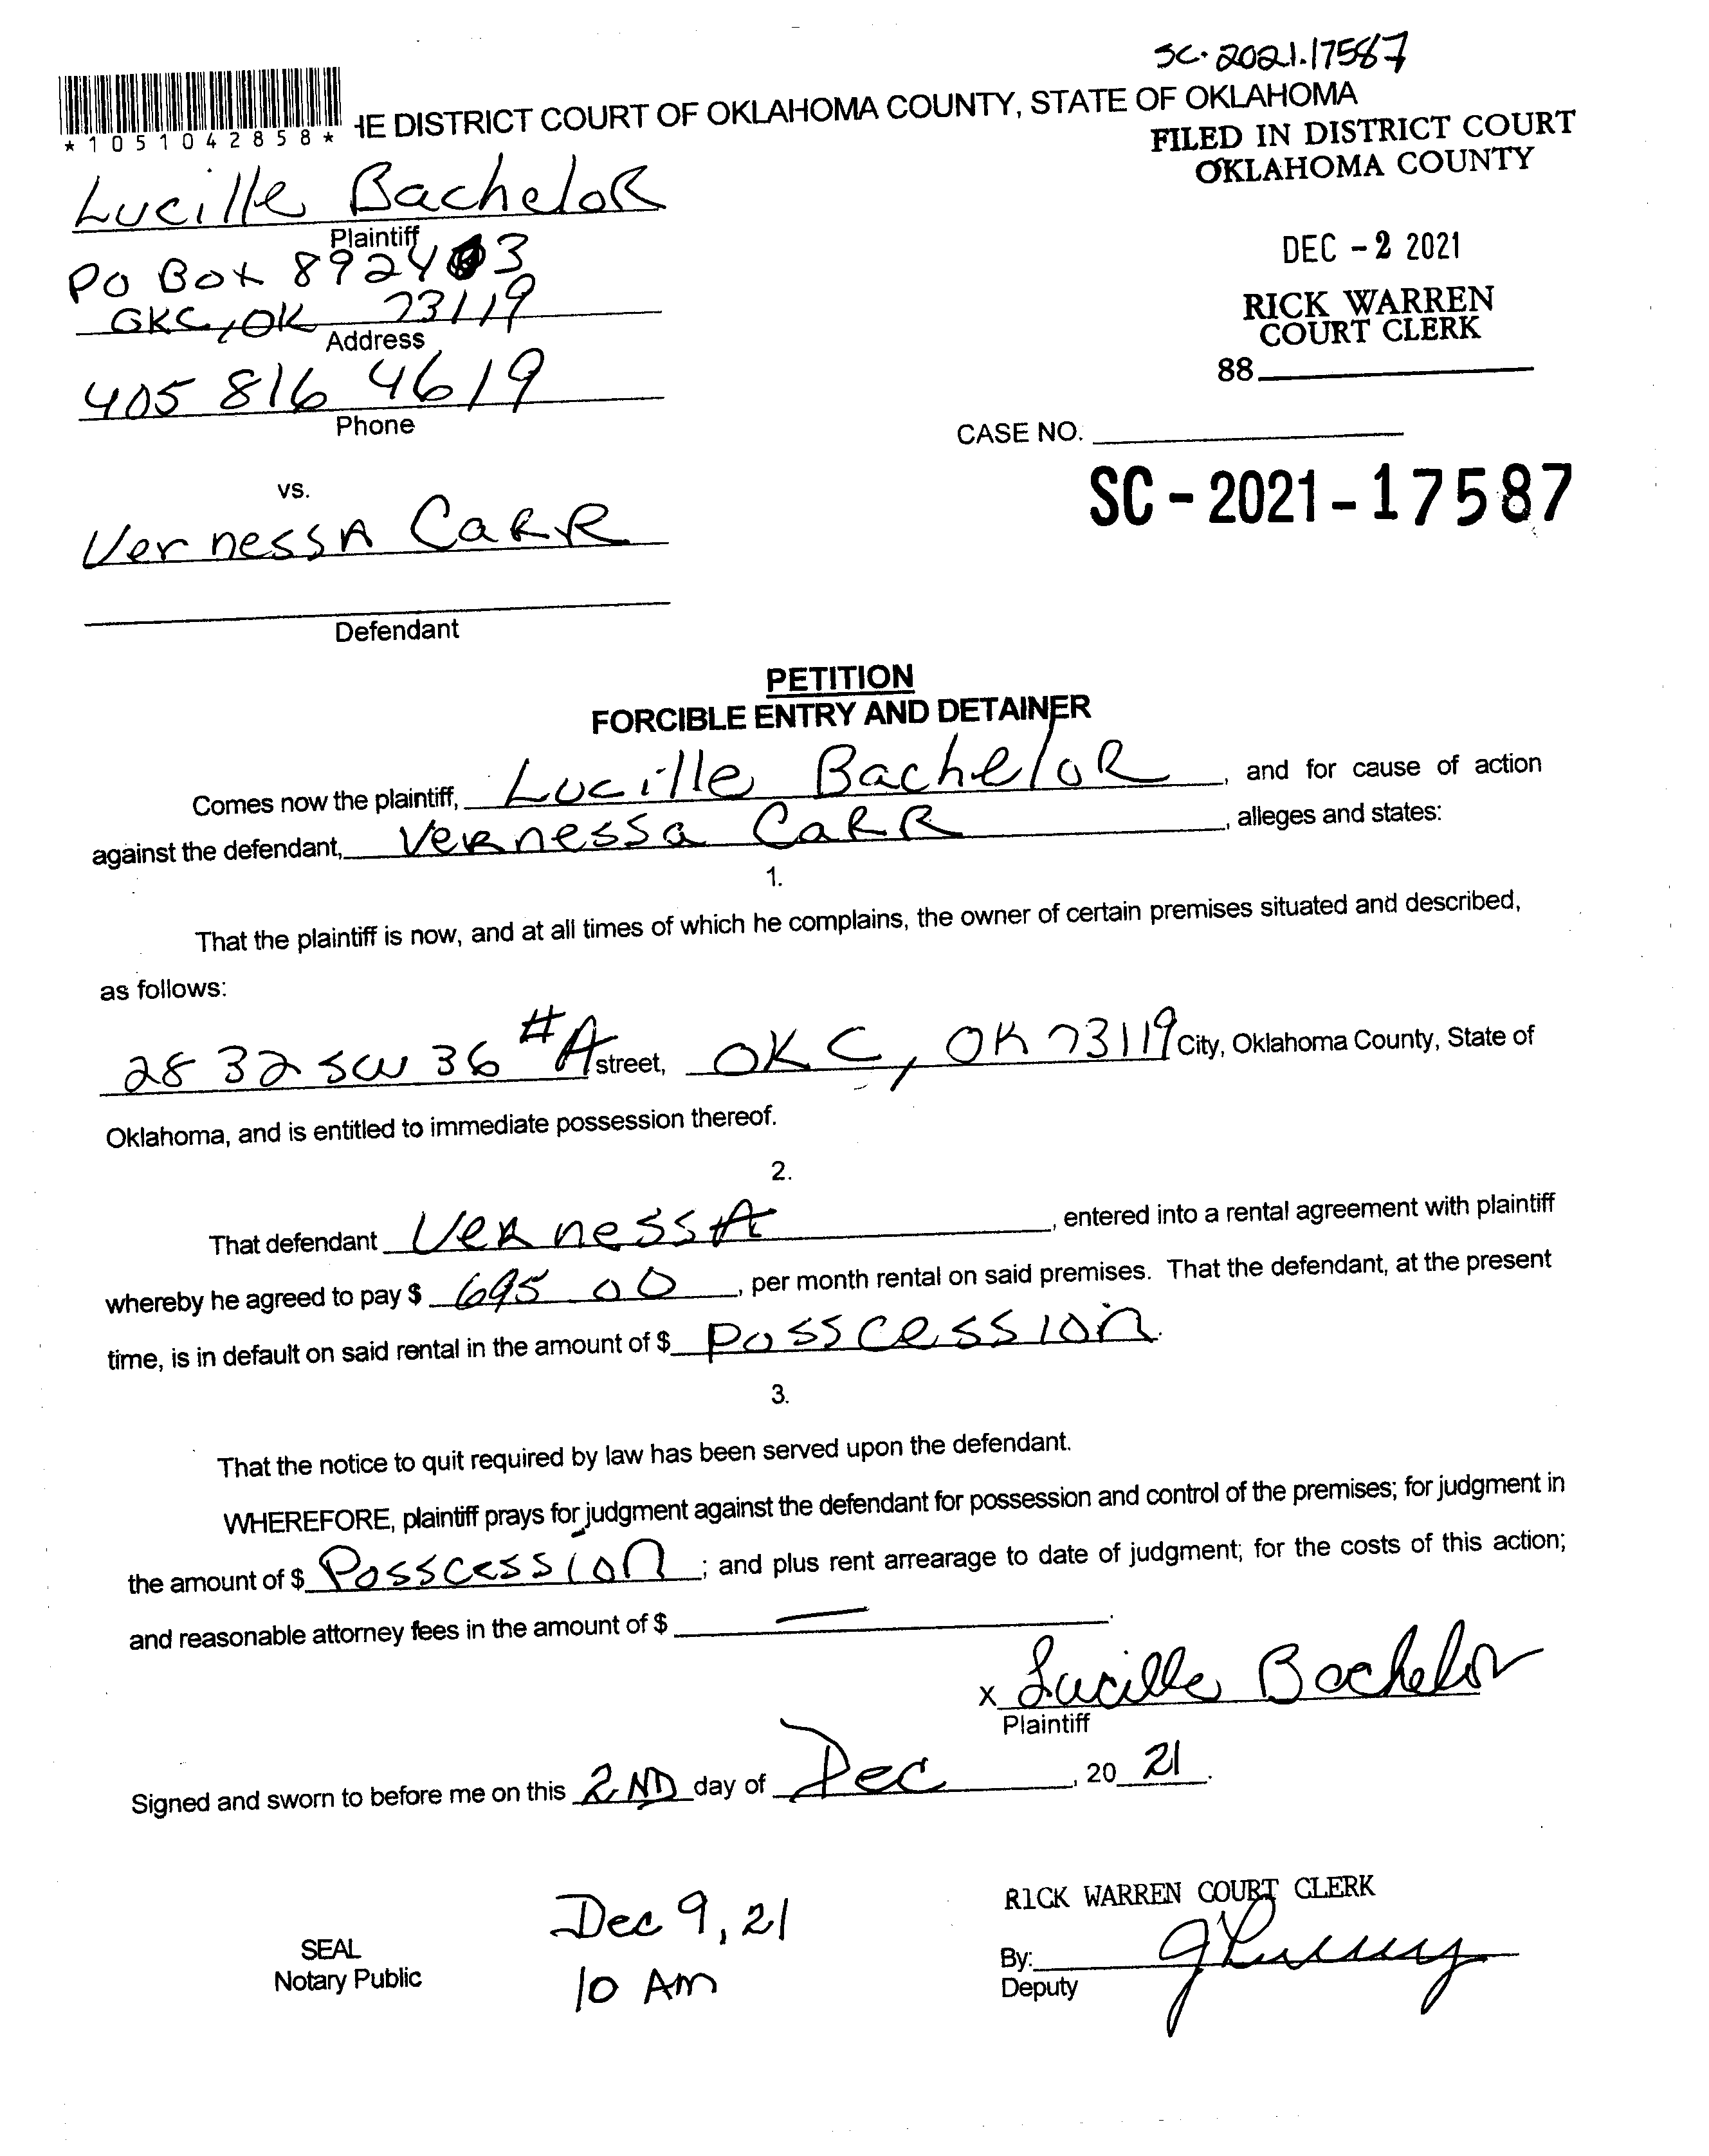 SC. 2021.17587
*1051042858* HE DISTRICT COURT OF OKLAHOMA COUNTY, STATE OF OKLAHOMA
FILED IN DISTRICT COURT
OKLAHOMA COUNTY
Lucille Bachelor
Plaintiff
PO Box 892403
OKC, OK 73119
Address
405 816 4619
Phone
DEC - 2 2021
RICK WARREN
COURT CLERK
88
CASE NO.
SC - 2021 - 17587
vs.
Vernessa Carr
Defendant
PETITION
FORCIBLE ENTRY AND DETAINER
Comes now the plaintiff, Lucille Bachelor, and for cause of action
against the defendant, Vernessa Carr, alleges and states:
1.
That the plaintiff is now, and at all times of which he complains, the owner of certain premises situated and described,
as follows:
2832 SW 36 #A street, OKC, OK 73119 City, Oklahoma County, State of
Oklahoma, and is entitled to immediate possession thereof.
2.
That defendant Vernessa, entered into a rental agreement with plaintiff
whereby he agreed to pay $ 695.00, per month rental on said premises. That the defendant, at the present
time, is in default on said rental in the amount of $ Posscession.
3.
That the notice to quit required by law has been served upon the defendant.
WHEREFORE, plaintiff prays for judgment against the defendant for possession and control of the premises; for judgment in
the amount of $ Posscession; and plus rent arrearage to date of judgment; for the costs of this action;
and reasonable attorney fees in the amount of $ —.
x Lucille Bachelor
Plaintiff
Signed and sworn to before me on this 2ND day of Dec, 20 21.
RICK WARREN COURT CLERK
Dec 9, 21
10 Am
SEAL
Notary Public
By:
Deputy